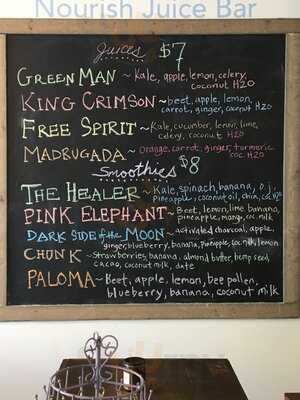 Nourish Juice Bar
Juices $7
GREEN MAN ~ Kale, apple, lemon, celery,
coconut H2O
KING CRIMSON ~ beet, apple, lemon,
carrot, ginger, coconut H2O
FREE SPIRIT ~ Kale, cucumber, lemon, lime,
celery, coconut H2O
MADRUGADA ~ Orange, carrot, ginger, turmeric
coc. H2O
Smoothies $8
THE HEALER ~ Kale, spinach, banana, o.j.,
pineapple, coconut oil, chia, coc. H2O
PINK ELEPHANT ~ Beet, lemon, lime, banana,
pineapple, mango, coc. milk
DARK SIDE of the MOON ~ activated charcoal, apple,
ginger, blueberry, banana, pineapple, coc. milk, lemon
CHUNK ~ Strawberries, banana, almond butter, hemp seed
cacao, coconut milk, date
PALOMA ~ Beet, apple, lemon, bee pollen,
blueberry, banana, coconut milk